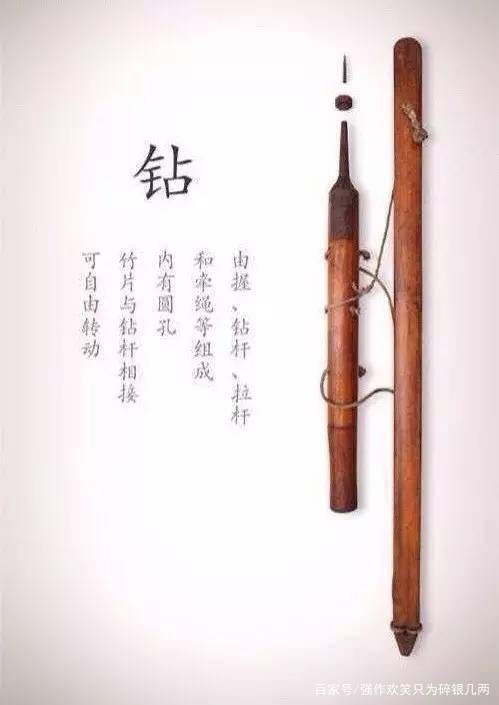 钻
由握、钻杆、拉杆
和牵绳等组成
内有圆孔
竹片与钻杆相接
可自由转动
百家号/强作欢笑只为碎银几两